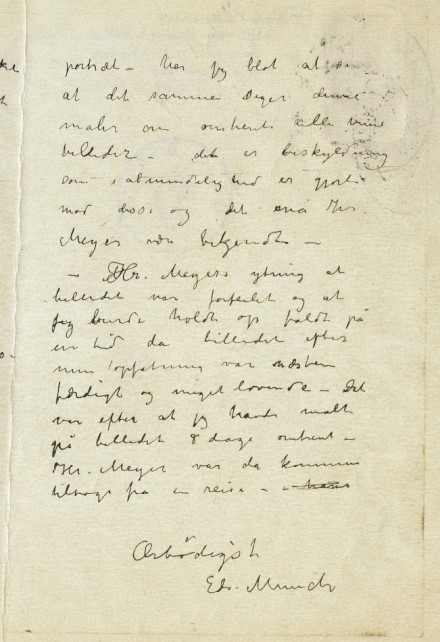 portræt – har jeg blot at se
at det samme siger denne
maler om omtrent alle mine
billeder – det er beskyldning
som almindelig er gjort
mod disse og det må Hr
Meyer være bekjendt –
– Hr. Meyers ytring at
billedet var forfeilet og at
jeg burde holdt op faldt på
en tid da billedet efter
min opfatning var næsten
færdigt og meget lovende – Det
var efter at jeg havde malt
på billedet 8 dage omtrent –
Hr. Meyer var da kommen
tilbage fra en reise –
Ærbødigst
Edv. Munch